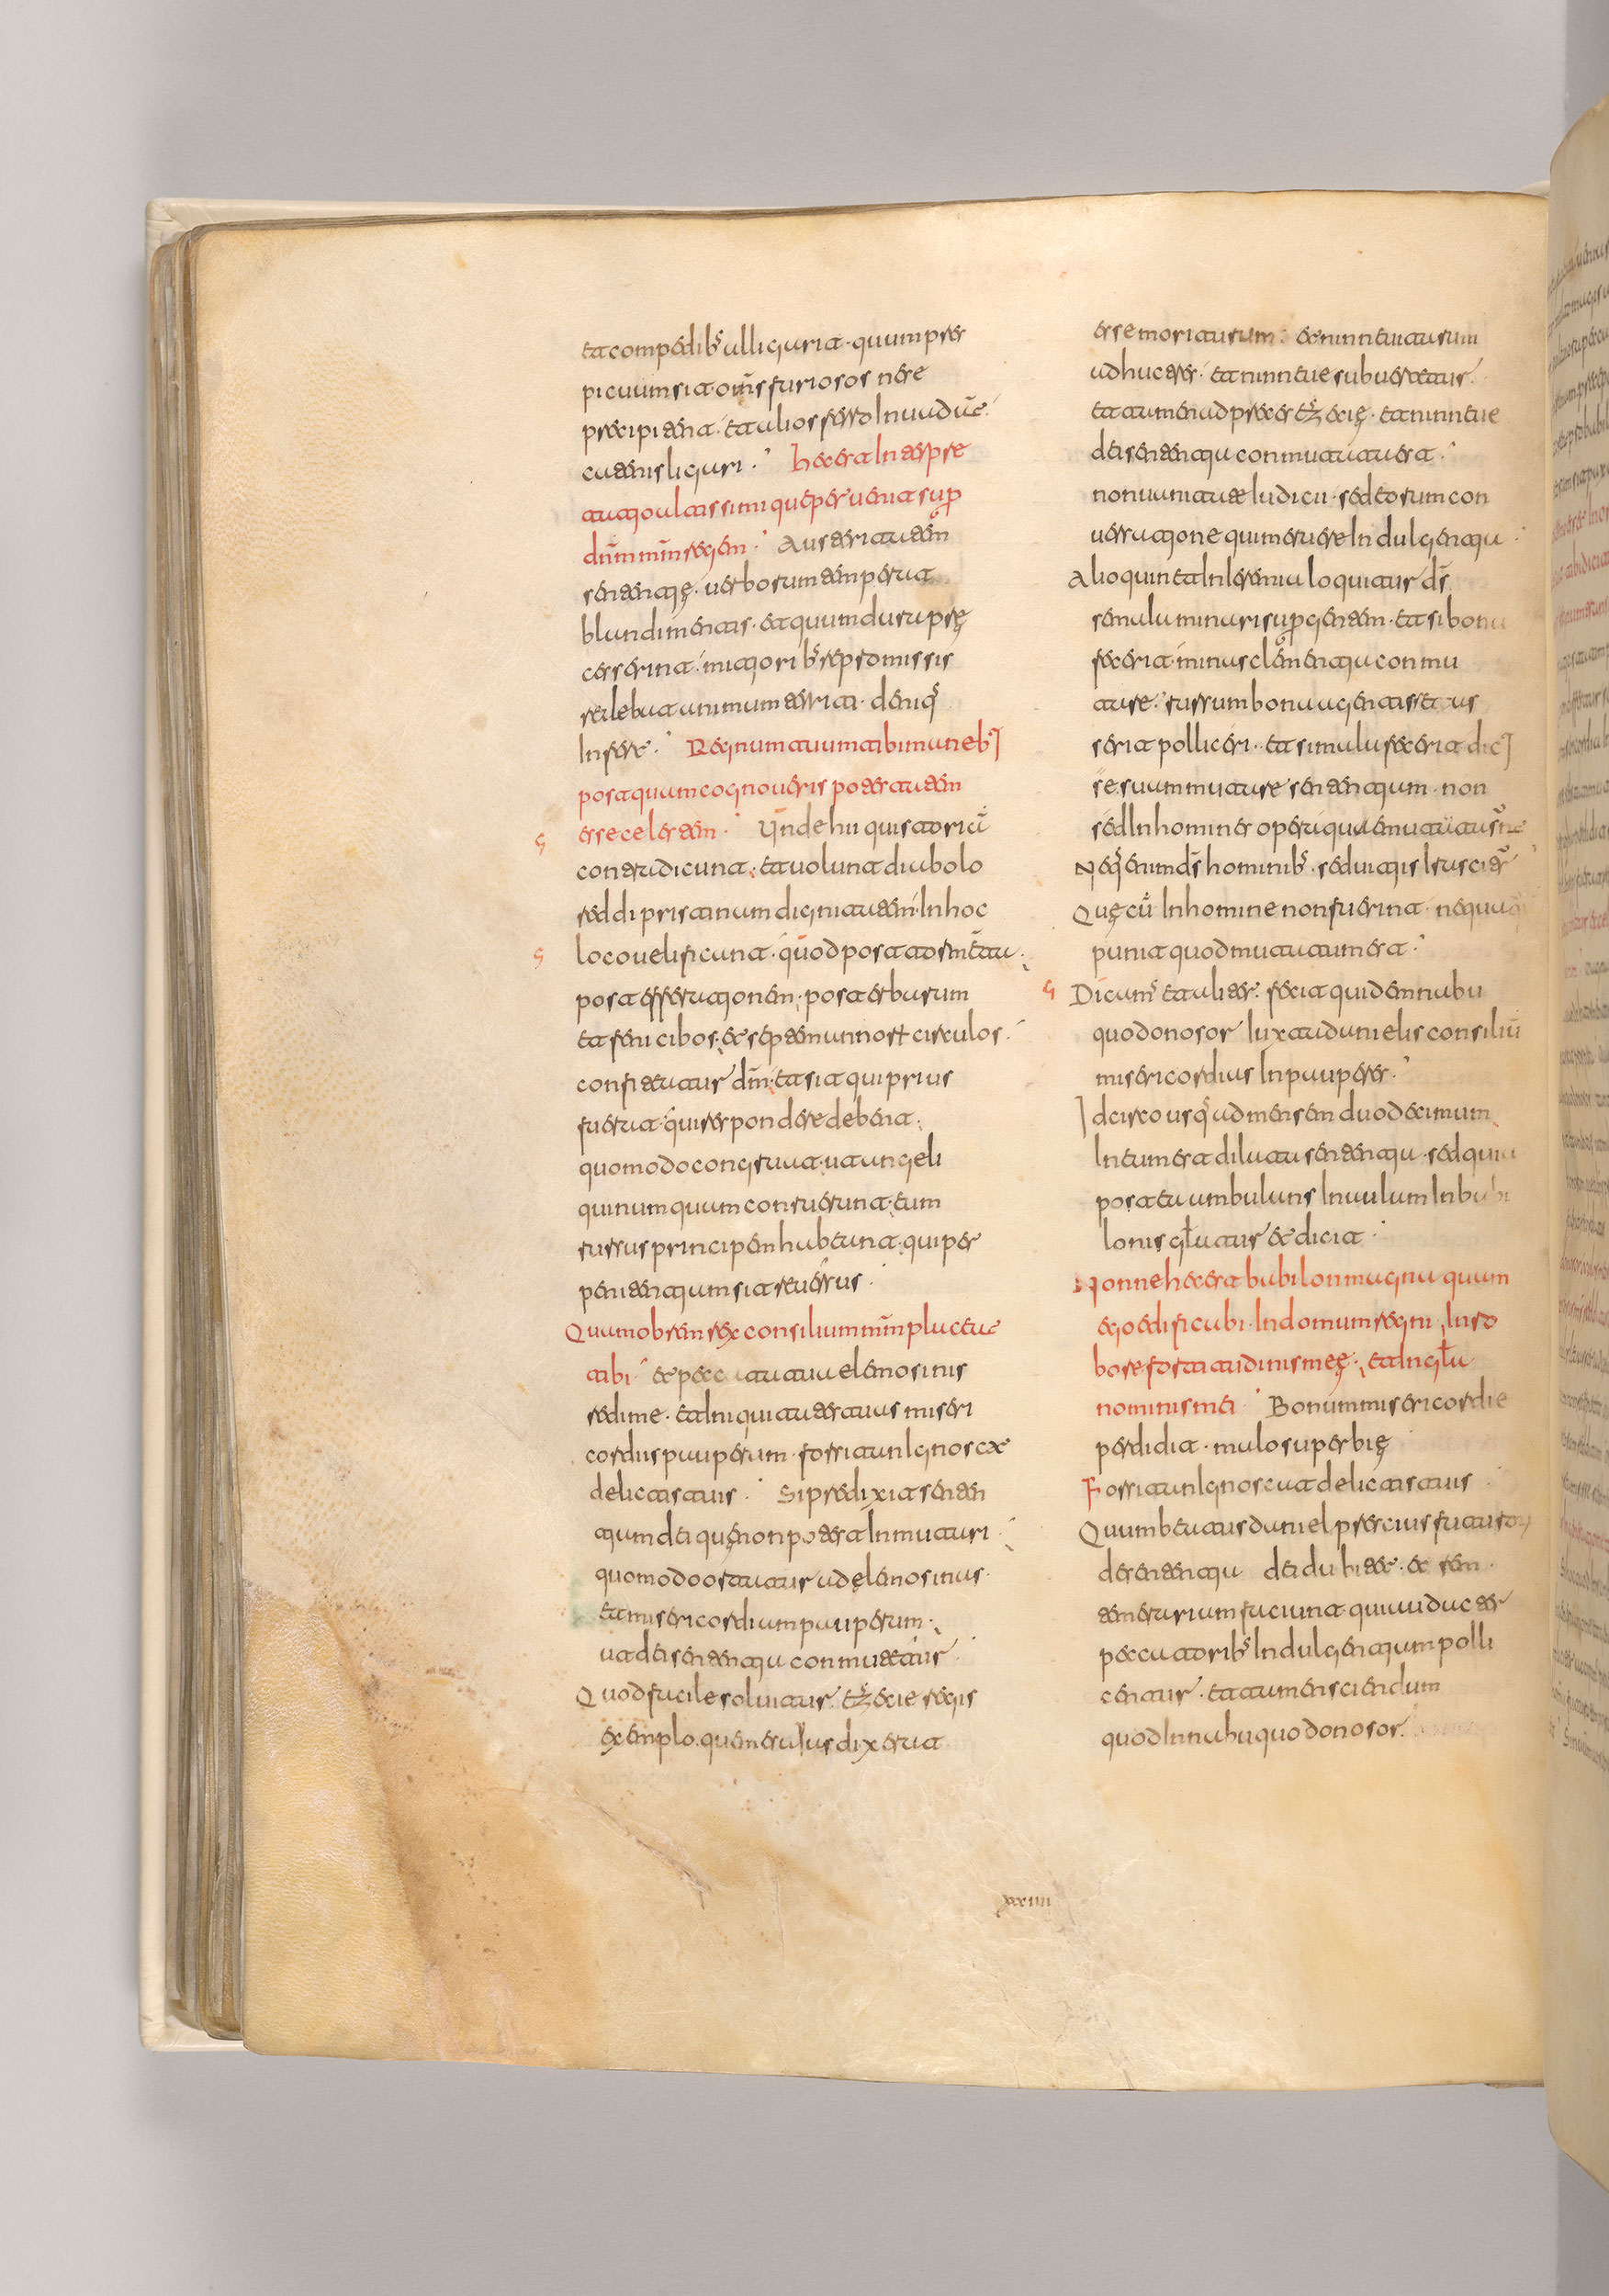 et compedibꝰ alligarit · quum pers
picuum sit om̄s furiosos ne se
precipitent · et alios ferro Inuadāt
catenis ligari · hec est Interpre
tatio altissimi que peruenit sup̄
dn̄m mm̄ regem · Austeritatem
sententię · uerborum temperat
blandimentis · et quum dura prę
cesserint · mitioribꝰ repromissis
releuat animum territi · deniqꝰ
Infert · Regnum tuum tibi manebꝰ
postquam cognoueris potestatem
esse celestem · Unde hii qui storicū
contradicunt · et uolunt diabolo
reddi pristinam dignitatem · In hoc
loco uelificant · quod post tormēta
post efferationem · post erbarum
et feni cibos · et septem annorum circulos ·
confiteatur dm̄ · et sit qui prius
fuerat · qui respondere debent ·
quomodo congruat · ut angeli
qui numquam conruerunt · eum
rursus principem habeant · qui per
penitentiam sit reuersus ·
Quamobrem rex consilium mm̄ placeat
tibi · et pecc ata tua elemosinis
redime · et Iniquitates tuas miseri
cordiis pauperum · forsitan Ignoscet
delictis tuis · Si predixit senten
tiam dei quę non potest Inmutari ·
quomodo ortatur ad elemosinas ·
et misericordiam pauperum ·
ut dei sententia conmutetur
Quod facile soluitur · ezecie regis
exemplo · quem esaias dixerat
esse moriturum · et niniuitarum
adhuc tres · et niniue subuertetur ·
et tamen ad preces ezecię · et niniue
dei sententia conmutata est ·
non uanitate Iudicii · sed eorum con
uersatione qui meruere Indulgentia ·
Alioquin et In Ieremia loquitur ds̄
se mala minari sup̄ gentem · et si bona
fecerit · minus clementia conmu
tare · rursum bona agentis se tus
serit polliceri · et si mala fecerit dicꝰ
se suum mutare sententiam · non
sed In homines opera qua emutati sunt
Neqꝰ enim ds̄ hominibꝰ · sed uitiis Irascitꝰ
Quę cū In homine non fuerint · nequaq̄
punit quod mutatum est ·
Dicamꝰ et aliter · fecit quidem nabu
quodonosor Iuxta danielis consiliū
misericordias In pauperes ·
Idcirco usqꝰ ad mensem duodecimum
In eum est dilata sententia · sed quia
postea ambulans In aulam In babi
lonis glā atur et dicit ·
Nonne hec est babilon magna quam
ego edificabi · In domum regni · In ro
bore fortitudinis meę · et In glā
nominis mei Bonum misericordie
perdidit · malo superbię
Forsitan Ignoscat delictis tuis ·
Quum beatus daniel prescius futurorꝰ
de sententia dei dubitet · et rem
temerariam faciunt · qui audacter
peccatoribꝰ Indulgentiam polli
centur · et tamen sciendum
quod In nabuquodonosor ·
xxiiii